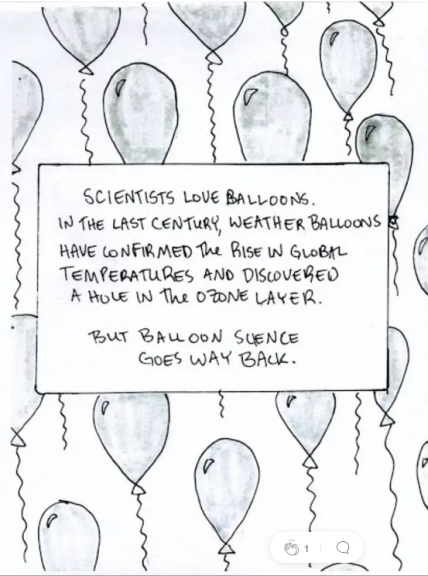 SCIENTISTS LOVE BALLOONS.
IN THE LAST CENTURY, WEATHER BALLOONS
HAVE CONFIRMED The RISE IN GLOBAL
TEMPERATURES AND DISCOVERED
A HOLE IN The OZONE LAYER.
BUT BALLOON SCIENCE
GOES WAY BACK.
1